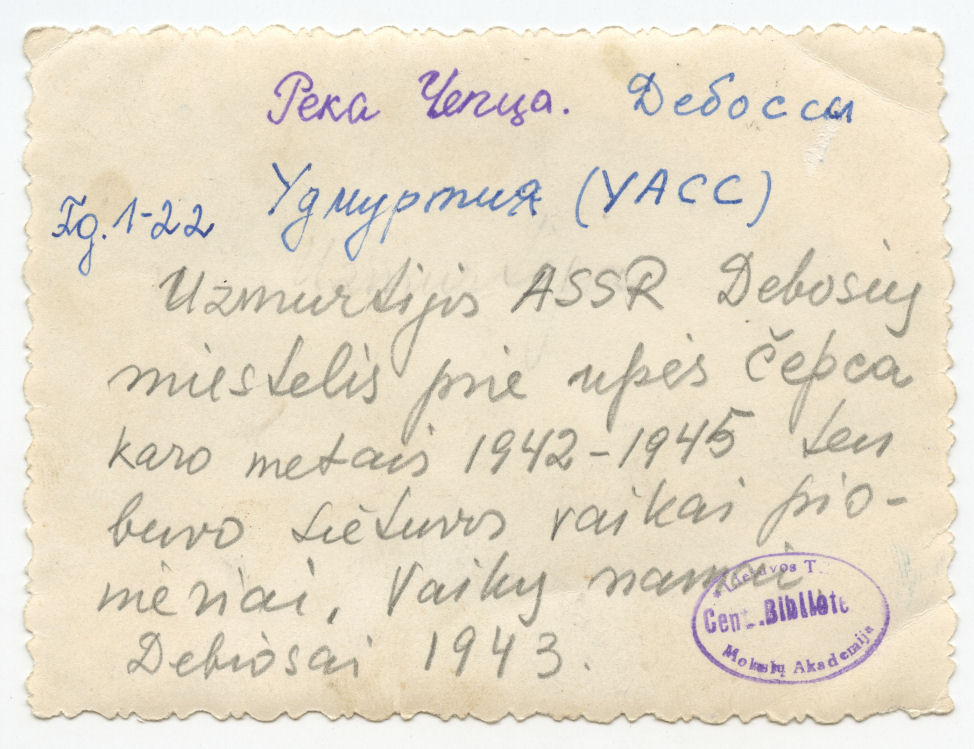 Река Чепца. Дебоссы
Удмуртия (УАСС)
Fg. 1-22
Uzmurtijos ASSR Debosių
miestelis prie upės Čepca
karo metais 1942-1945 ten
buvo Lietuvos vaikai pio-
nieriai, Vaikų namai
Debiosai 1943.
Lietuvos T.
Cent. Bibliote
Mokslų Akademija